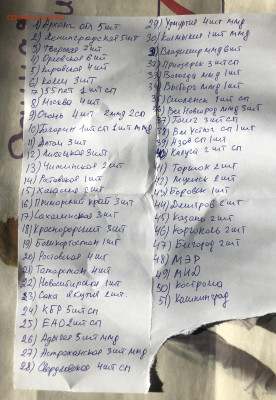 1) Арханг. обл 5шт
2) Ленинградская 5шт
3) Тверская 7шт
4) Орловская 6шт
5) Кировская 4шт
6) Коми 3шт
7) 55 лет 1шт сп
8) Москва 4шт
9) Очень 4шт 2ммд 2сп
10) Гагарин 1шт сп 2шт ммд
11) Алтай 3шт
12) Липецкая 5шт
13) Читинская 2шт
14) Ростовская 1шт
15) Хакасия 2шт
16) Приморский край 3шт
17) Сахалинская 3шт
18) Краснодарский 3шт
19) Башкортостан 1шт
20) Ростовская 4шт
21) Татарстан 4шт
22) Новосибирская 1шт
23) Саха Якутия 2шт.
24) КБР 5шт сп
25) ЕАО 2шт сп
26) Адыгея 5шт ммд
27) Астраханская 3шт ммд
28) Свердловская 4шт сп
29) Удмуртия 4шт ммд
30) Калмыкия 1шт ммд
31) Владимир ммд 6шт
32) Приозерск 3шт сп
33) Вологда ммд 1шт
34) Выборг ммд 1шт
35) Смоленск 1шт сп
36) Вел Новгород ммд 3шт
37) Галич 3шт сп
38) Вел Устюг сп 1шт
39) Азов сп 1шт
40) Калуга 2шт сп
41) Торжок 2шт
42) 2шт
43) Боровск 1шт
44) Дмитров 6шт
45) Казань 2шт
46) Каргополь 2шт
47) Белгород 2шт
48) МЭР
49) МИД
50) Кострома
51) Калининград